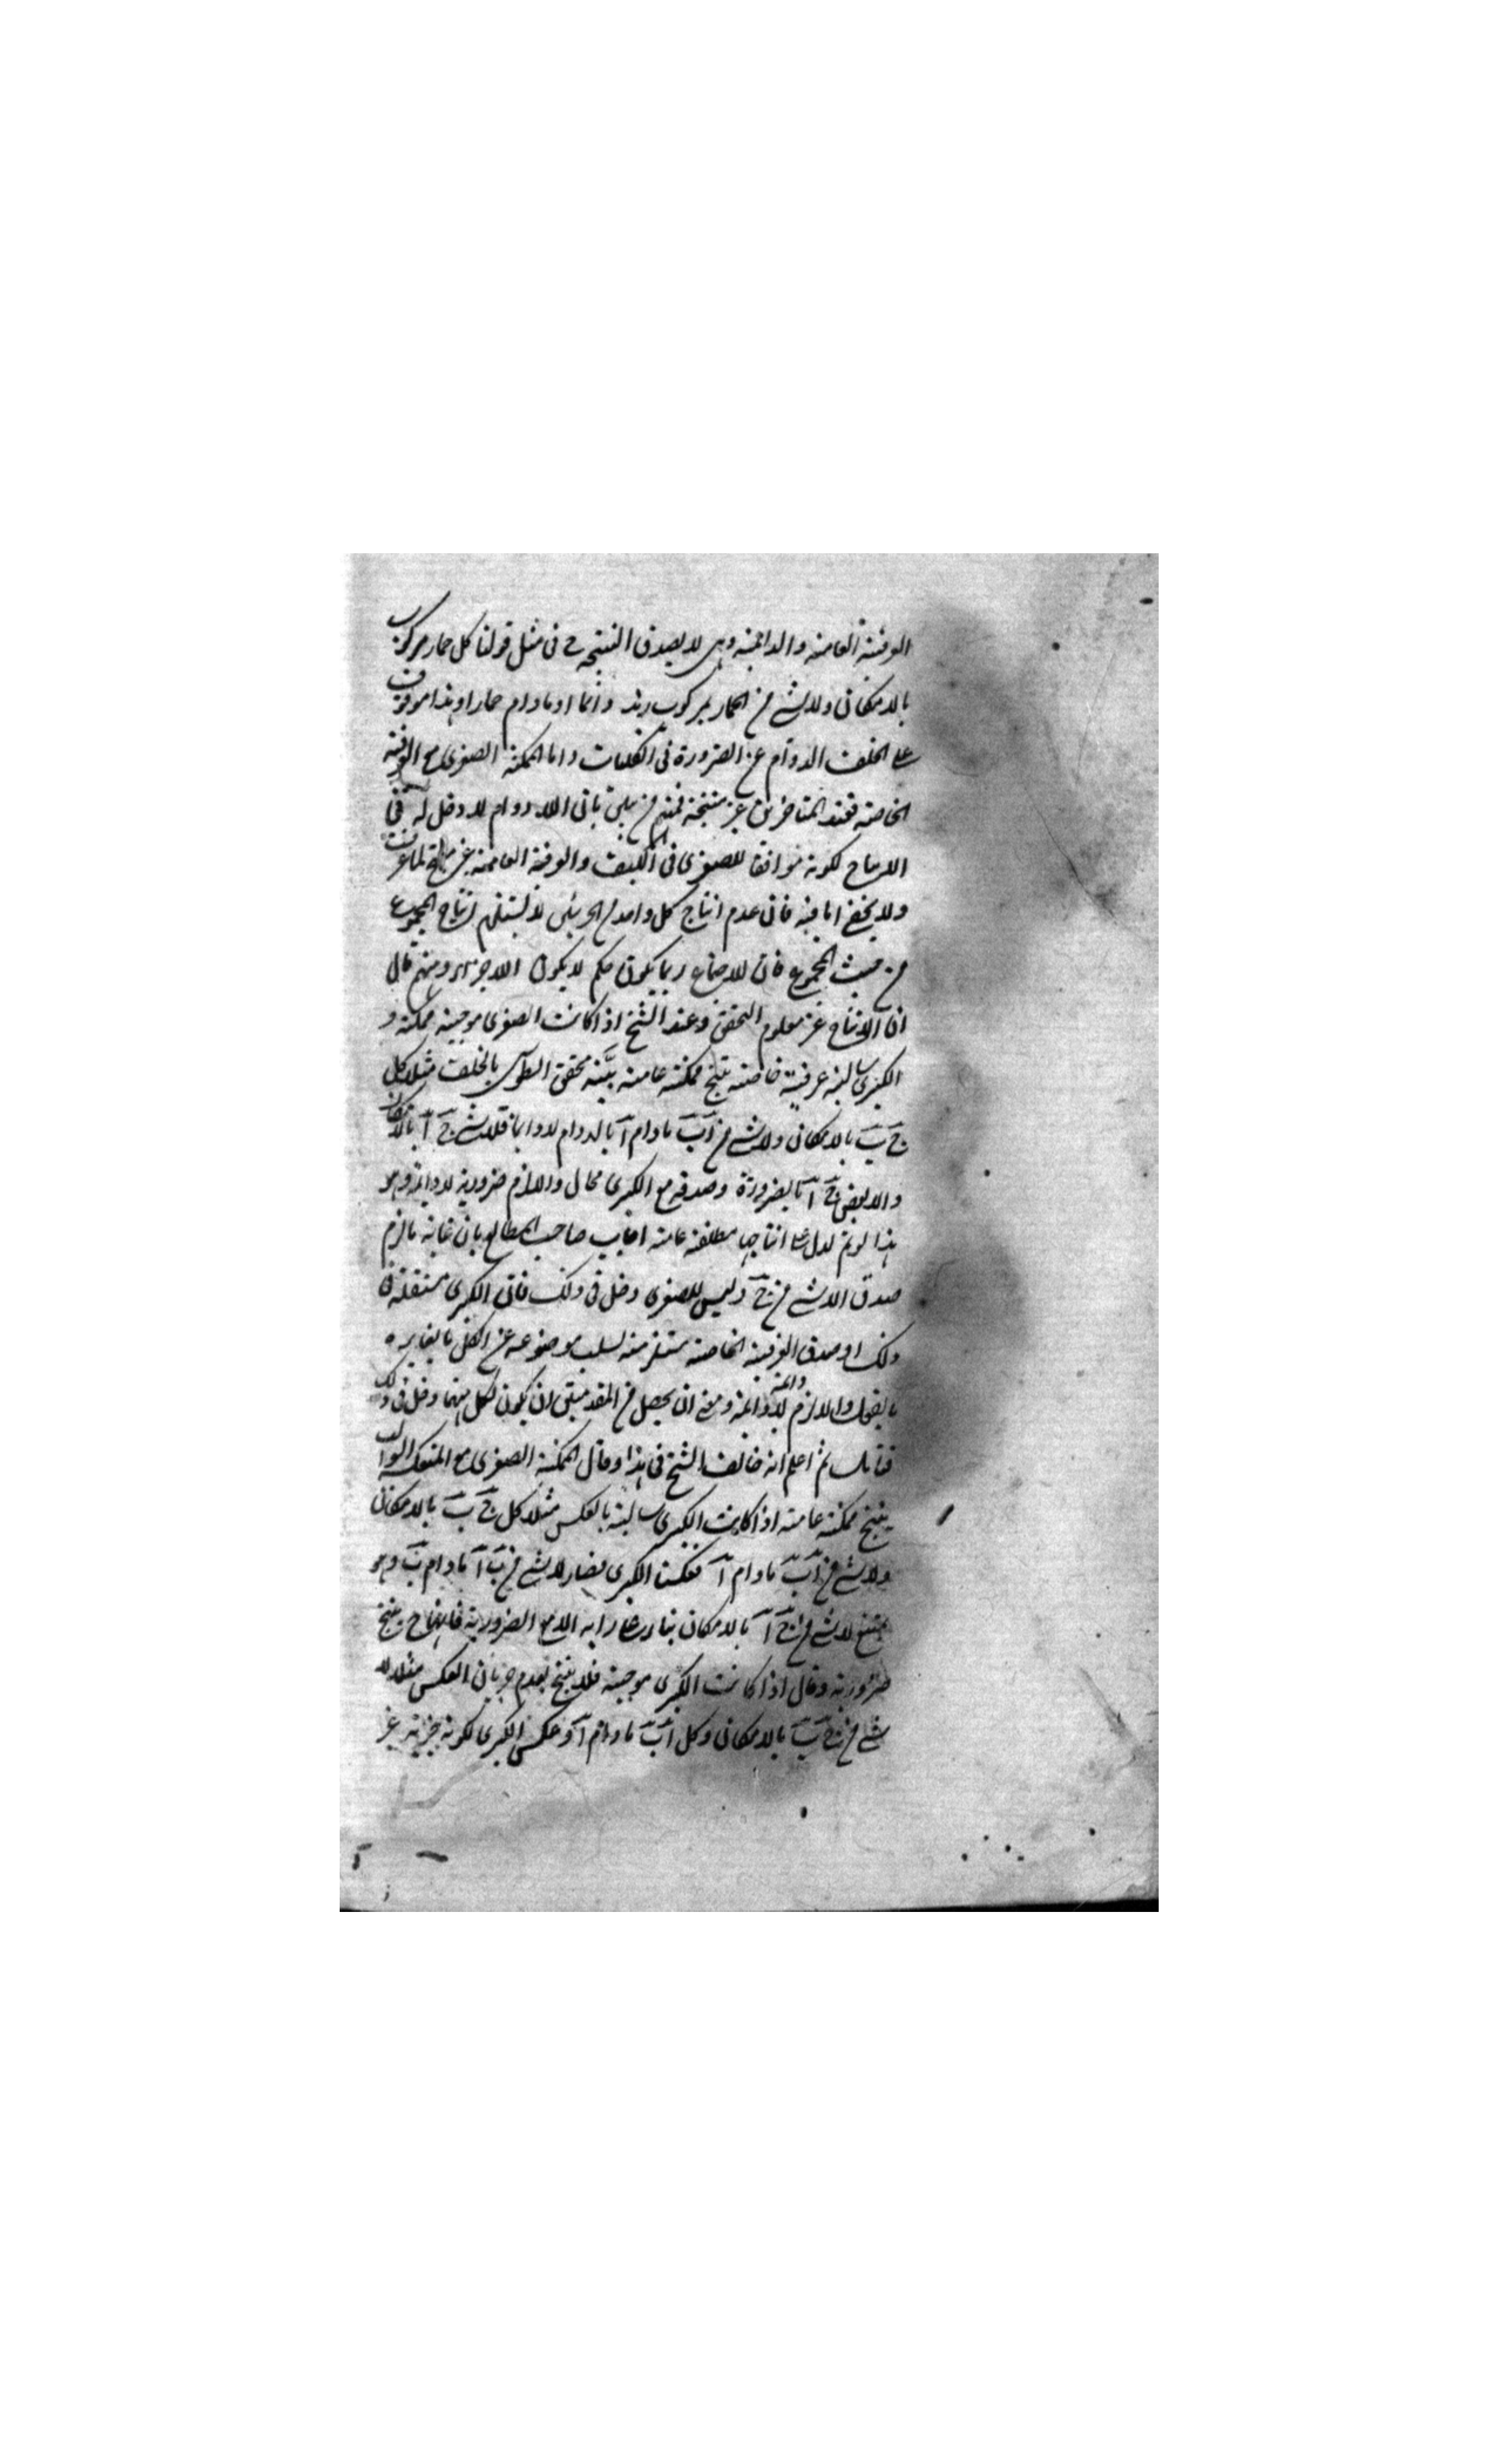 العرفية العامة والدائمة وهى لا يصدق النتيجة ح فى مثل قولنا كل حمار مركوب
بالامكان ولا شے من الحمار بمركوب زيد دائما او مادام حمارا وهذا موقوف
على تخلف الدوام عن الضرورة فى الكليات واما الممكنة الصغرى مع العرفية
الخاصة فعند المتاخرين غير منتجة فمنهم من بان اللادوام لا دخل له فى
الانتاج لكونه موافقا للصغرى فى الكيف والعرفية العامة غير منتج لما عرفت
ولا يخفى ما فيه فان عدم انتاج كل واحد من الجزئين لا يستلزم انتاج المجموع
من حيث المجموع فان للاجتماع ربما يكون حكم لا يكون للاجزاء ومنهم قال
ان الانتاج غير معلوم التحقق وعند الشيخ اذا كانت الصغرى موجبة ممكنة و
الكبرى سالبة عرفية خاصة ينتج ممكنة عامة بيَّنه محقق الطوسى بالخلف مثلا كل
ج ب بالامكان ولا شے من ب مادام ا بالدوام لا دائما فلا شے ج ا بالامكان
والا بعض ج ا بالضرورة وصدقه مع الكبرى محال واللازم ضرورية لا دائمة وهو
هذا لو تم لدل على انتاجها مطلقة عامة اجاب صاحب المطالع بان غاية مالزم
صدق لا شے من ج وليس للصغرى دخل فى ذلك فان الكبرى مستقلة فى
ذلك اذ صدق العرفية الخاصة مستلزمة لسلب موضوعه عن الكل ما يغايره
بالفعل واللازم لا دائمة دائمة ومعنى ان يحصل من المقدمتين ان يكون لكل منهما دخل فى ذلك
فتامل ثم اعلم انه خالف الشيخ فى هذا وقال الممكنة الصغرى مع
ينتج ممكنة عامة اذا كانت الكبرى سالبة بالعكس مثلا كل ج ب بالامكان
ولا شے من ا ب مادام ا فعكسنا الكبرى فصار لا شے من ب ا مادام ب وهو
ينتج لا شے من ج ا بالامكان بناء على رايه الا مع الضرورية فانها ح ينتج
ضرورية وقال اذا كانت الكبرى موجبة فلا ينتج لعدم جريان العكس مثلا لا
شے من ج ب بالامكان وكل ا ب مادام ا وعكس الكبرى لكونه جزئية غير